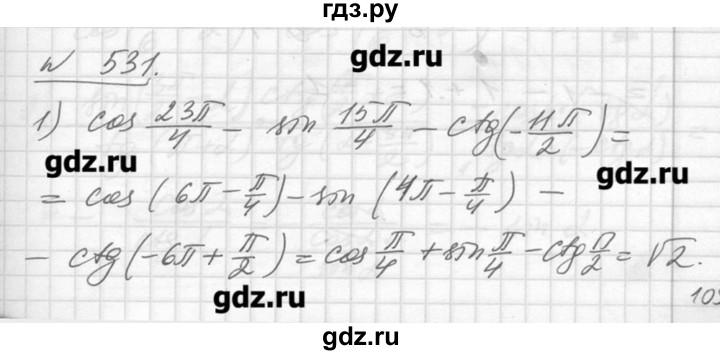 гдз.ру
gdz.ru
N 531.
1) cos 23π/4 - sin 15π/4 - ctg(-11π/2) =
gdz.ru
gdz.ru
= cos (6π - π/4) - sin (4π - π/4) -
- ctg(-6π + π/2) = cos π/4 + sin π/4 - ctg π/2 = √2.
gdz.ru
103
gdz.ru